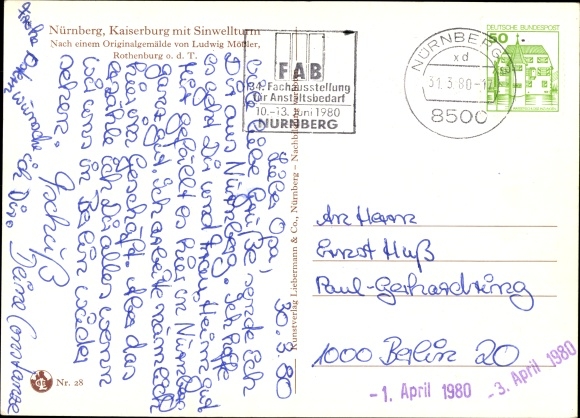 Nürnberg, Kaiserburg mit Sinwellturm
Nach einem Originalgemälde von Ludwig Mößler,
Rothenburg o. d. T.
30.3.80
Lieber Opa,
viele liebe Grüße sende ich
Dir aus Nürnberg. Ich hoffe
es geht Dir und
gut.
Mir gefällt es hier in Nürnberg
ganz gut. Ich arbeite nämlich
hier im Geschäft. Aber das
erzähle ich Dir alles wenn
wir uns in Berlin wieder
sehen. Tschüß
Deine Constanze
Frohe Ostern wünsche ich Dir.
Nr. 28
Kunstverlag Liebermann & Co., Nürnberg – Nachbildung
FAB
34. Fachausstellung
für Anstaltsbedarf
10.-13. Juni 1980
NÜRNBERG
NÜRNBERG
xd
31.3.80-17
8500
DEUTSCHE BUNDESPOST
50
An Herrn
Ernst Huß
Paul-Gerhardtring
1000 Berlin 20
-1. April 1980
-3. April 1980